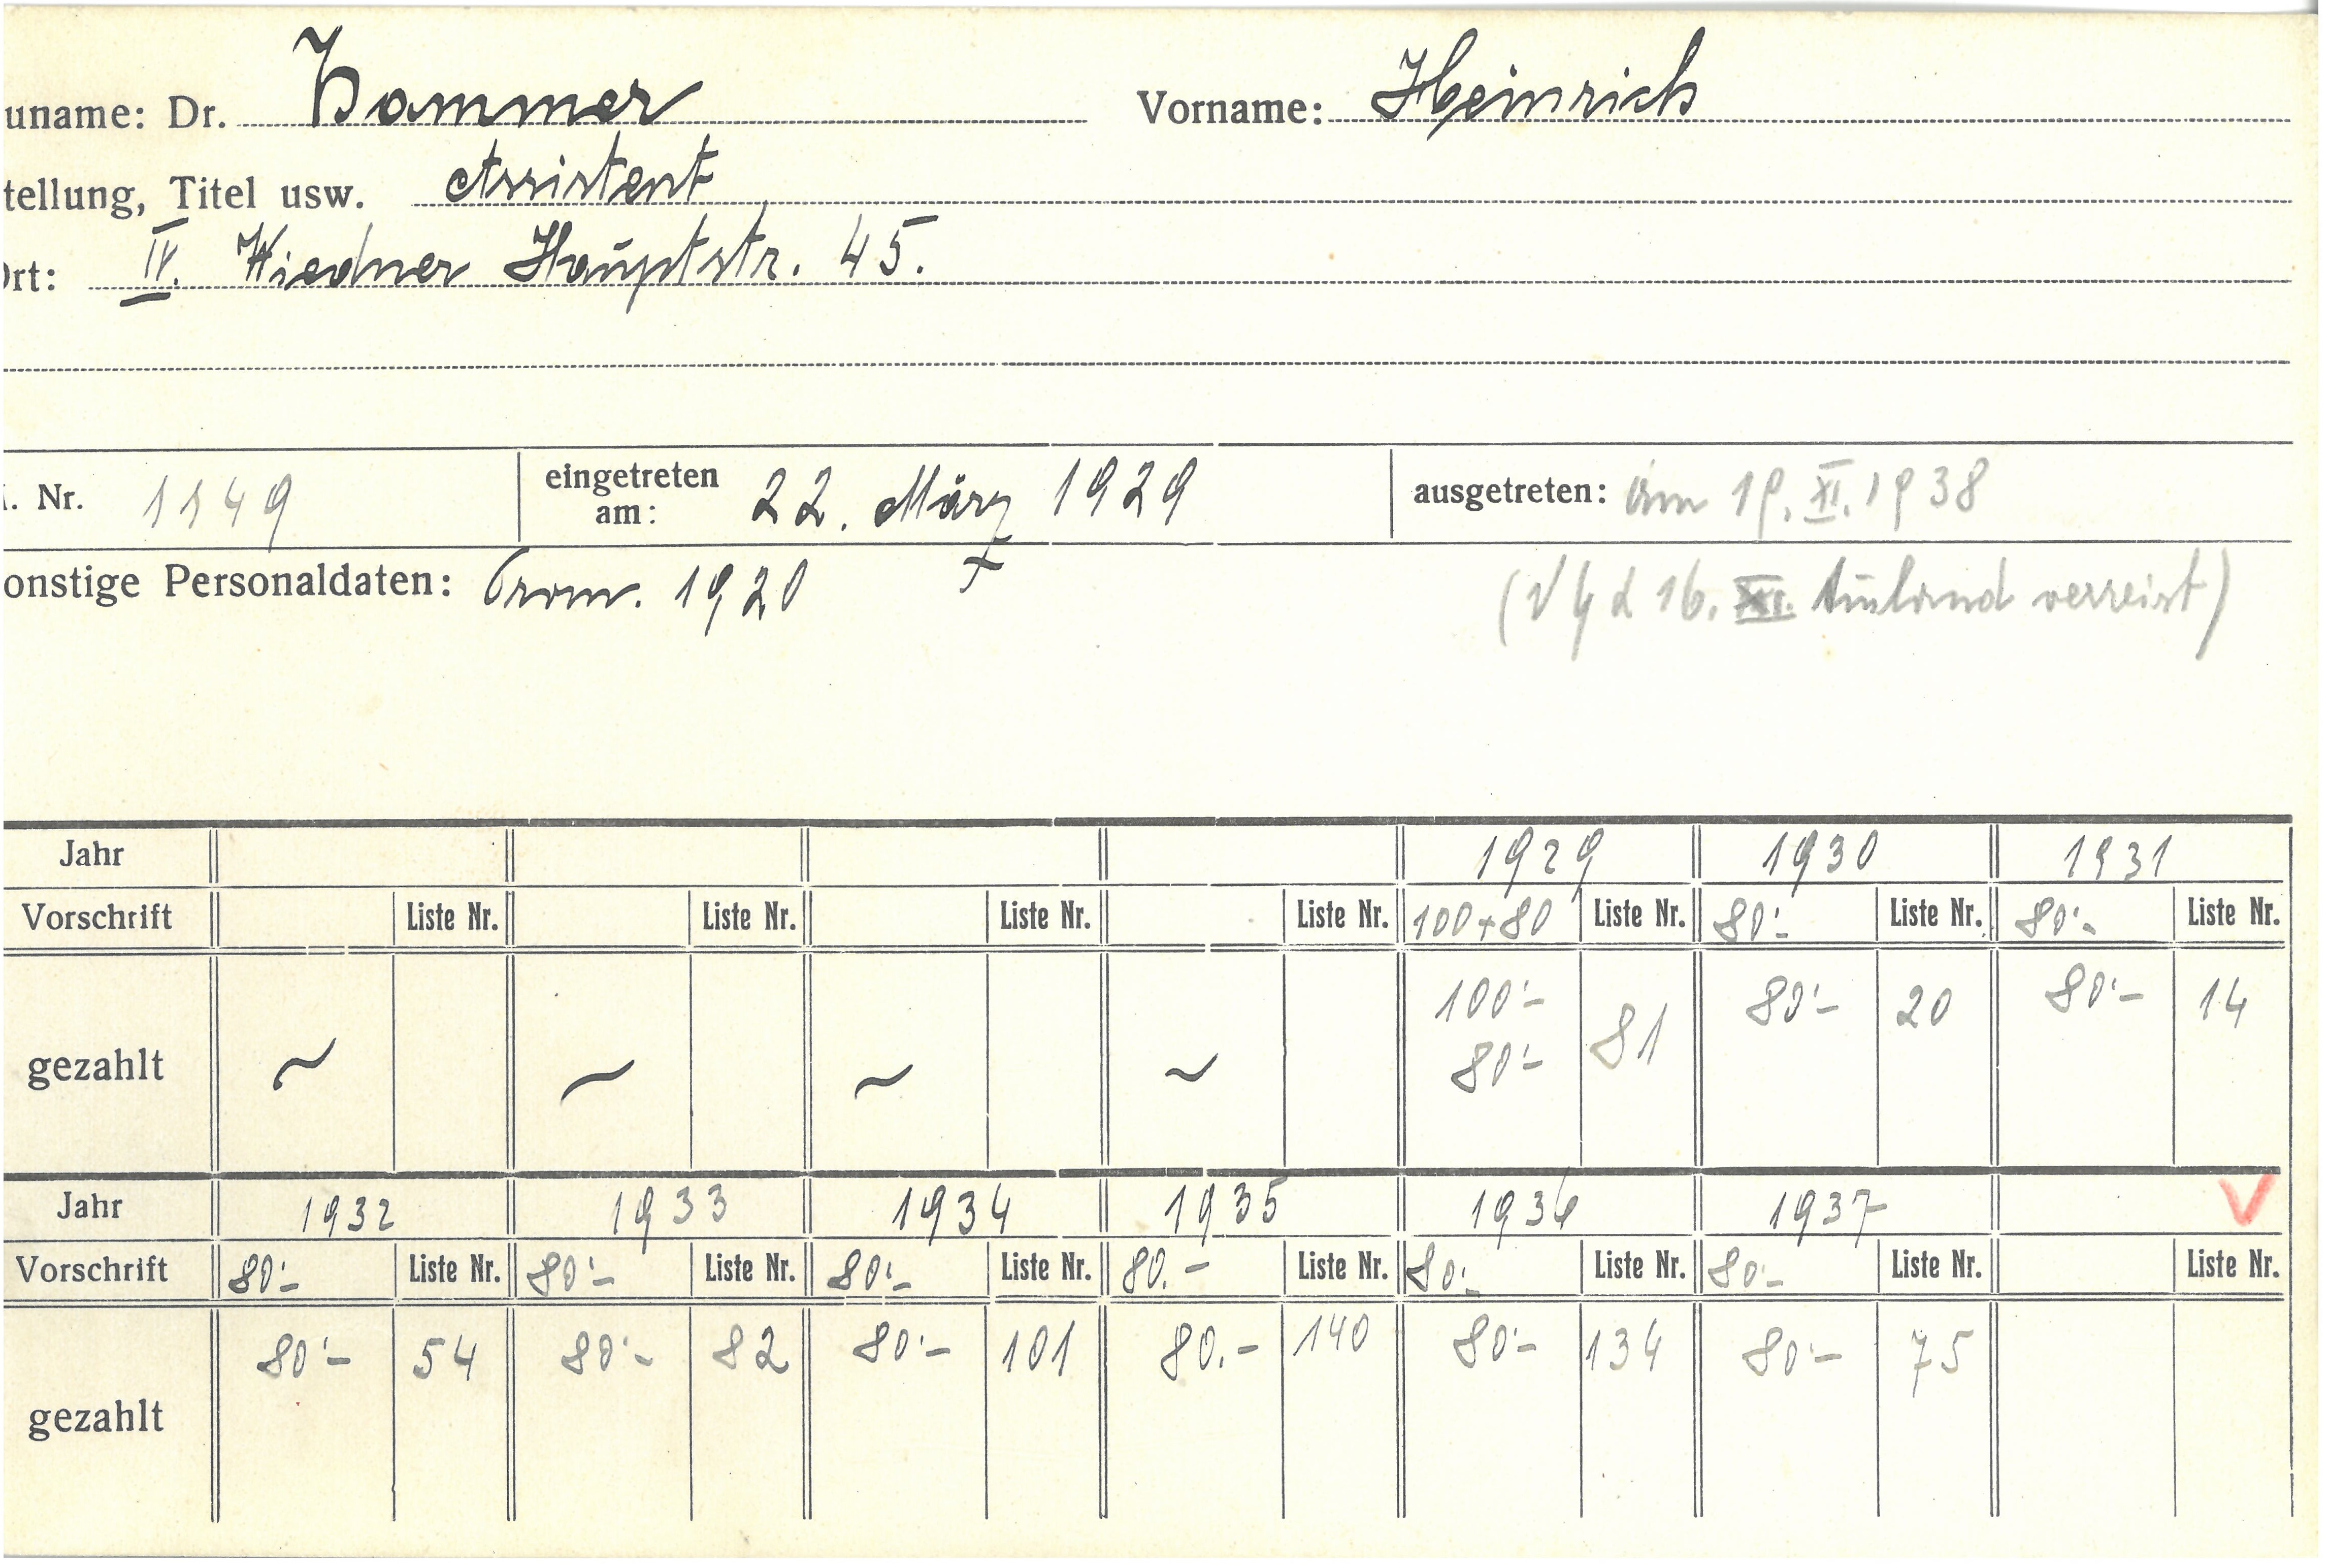 uname: Dr. Kammer Vorname: Heinrich
tellung, Titel usw. Assistent
Ort: IV. Wiedner Hauptstr. 45.
Nr. 1149 eingetreten am: 22. März 1929 ausgetreten: am 19. XI. 1938
onstige Personaldaten: Prom. 1920 16. Ausland verreist)
Jahr 1929 1930 1931
Vorschrift Liste Nr. Liste Nr. Liste Nr. Liste Nr. 100+80 Liste Nr. 80'- Liste Nr. 80'- Liste Nr.
gezahlt ~ ~ ~ ~ 100'- 80'- 81 80'- 20 80'- 14
Jahr 1932 1933 1934 1935 1936 1937 V
Vorschrift 80'- Liste Nr. 80'- Liste Nr. 80'- Liste Nr. 80.- Liste Nr. 80'- Liste Nr. 80'- Liste Nr. Liste Nr.
gezahlt 80'- 54 80'- 82 80'- 101 80.- 140 80'- 134 80'- 75